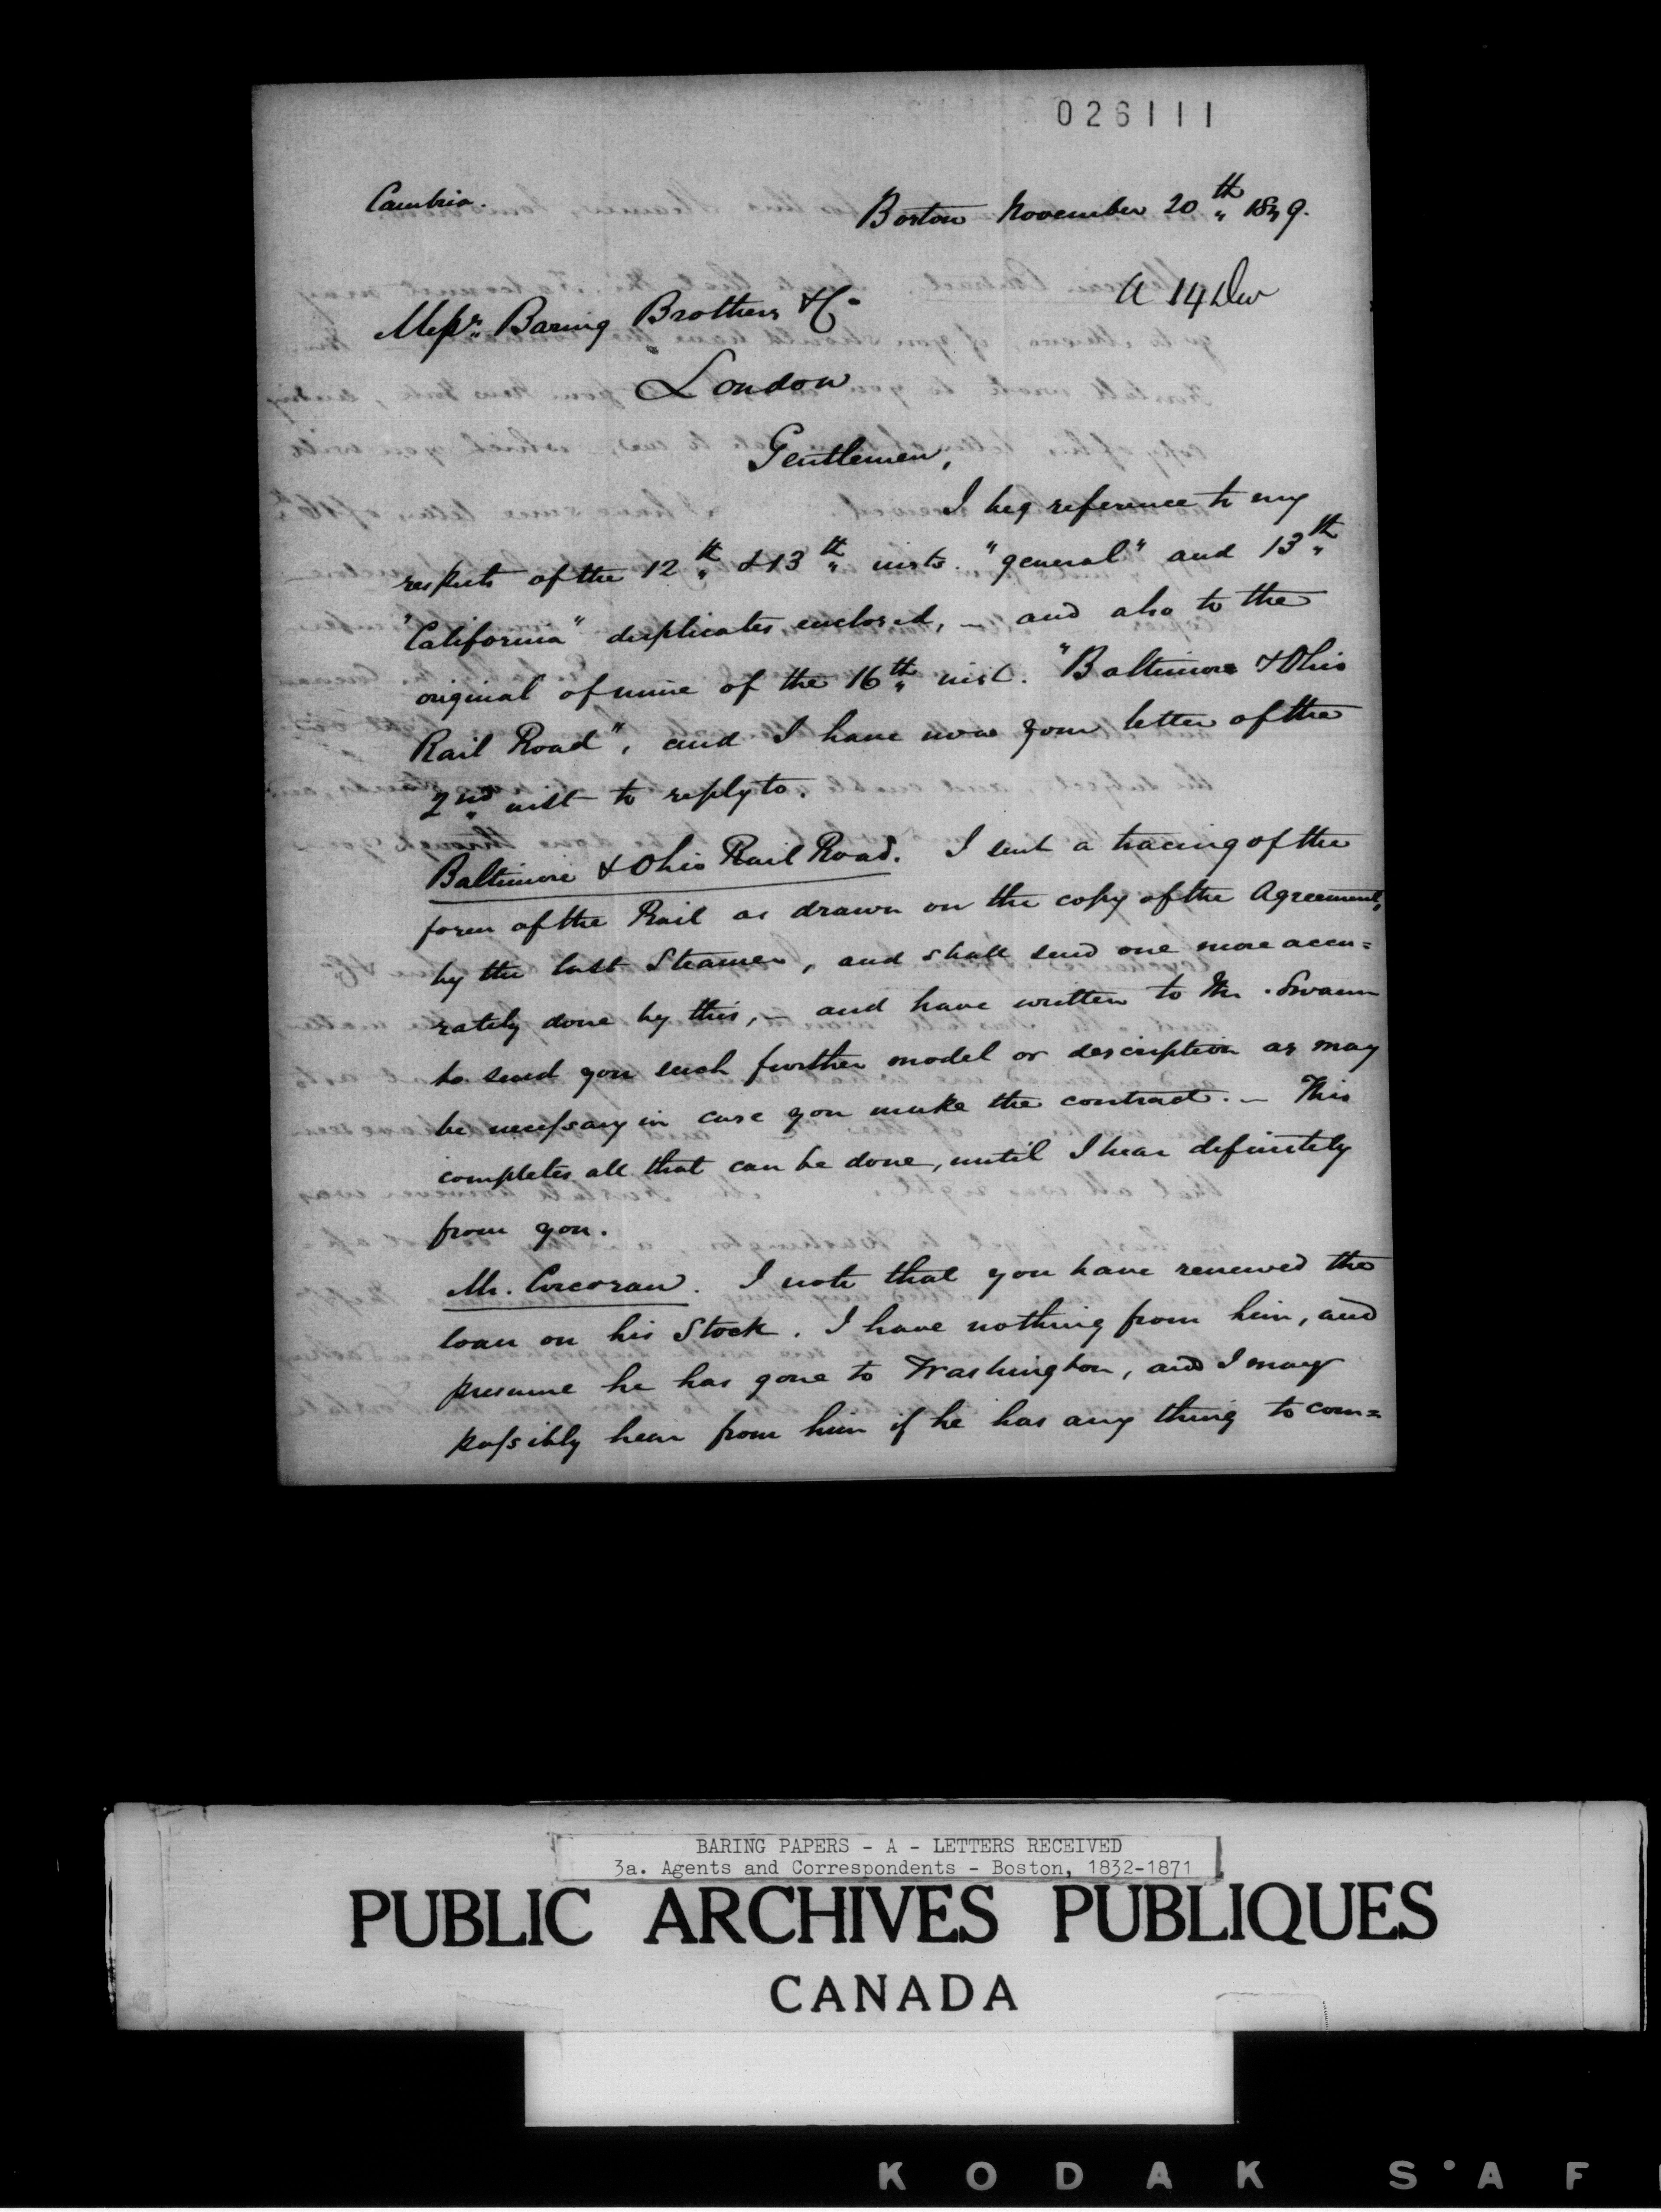 026111
Cambria.
Boston November 20th 1849.
a 14 Dec
Messrs. Baring Brothers & Co
London
Gentlemen,
I beg reference to my
respects of the 12th & 13th insts. "general" and 13th
"California" duplicates enclosed, – and also to the
original of mine of the 16th inst. "Baltimore & Ohio
Rail Road", and I have now your letter of the
2nd inst to reply to.
Baltimore & Ohio Rail Road. I sent a tracing of the
form of the Rail as drawn on the copy of the Agreement,
by the last Steamer, and shall send one more accu=
rately done by this, – and have written to Mr. Swann
to send you such further model or description as may
be necessary in case you make the contract. – This
completes all that can be done, until I hear definitely
from you.
Mr. Corcoran. I note that you have renewed the
loan on his Stock. I have nothing from him, and
presume he has gone to Washington, and I may
possibly hear from him if he has any thing to com=
BARING PAPERS - A - LETTERS RECEIVED
3a. Agents and Correspondents - Boston, 1832-1871
PUBLIC ARCHIVES PUBLIQUES
CANADA
KODAK S'AF